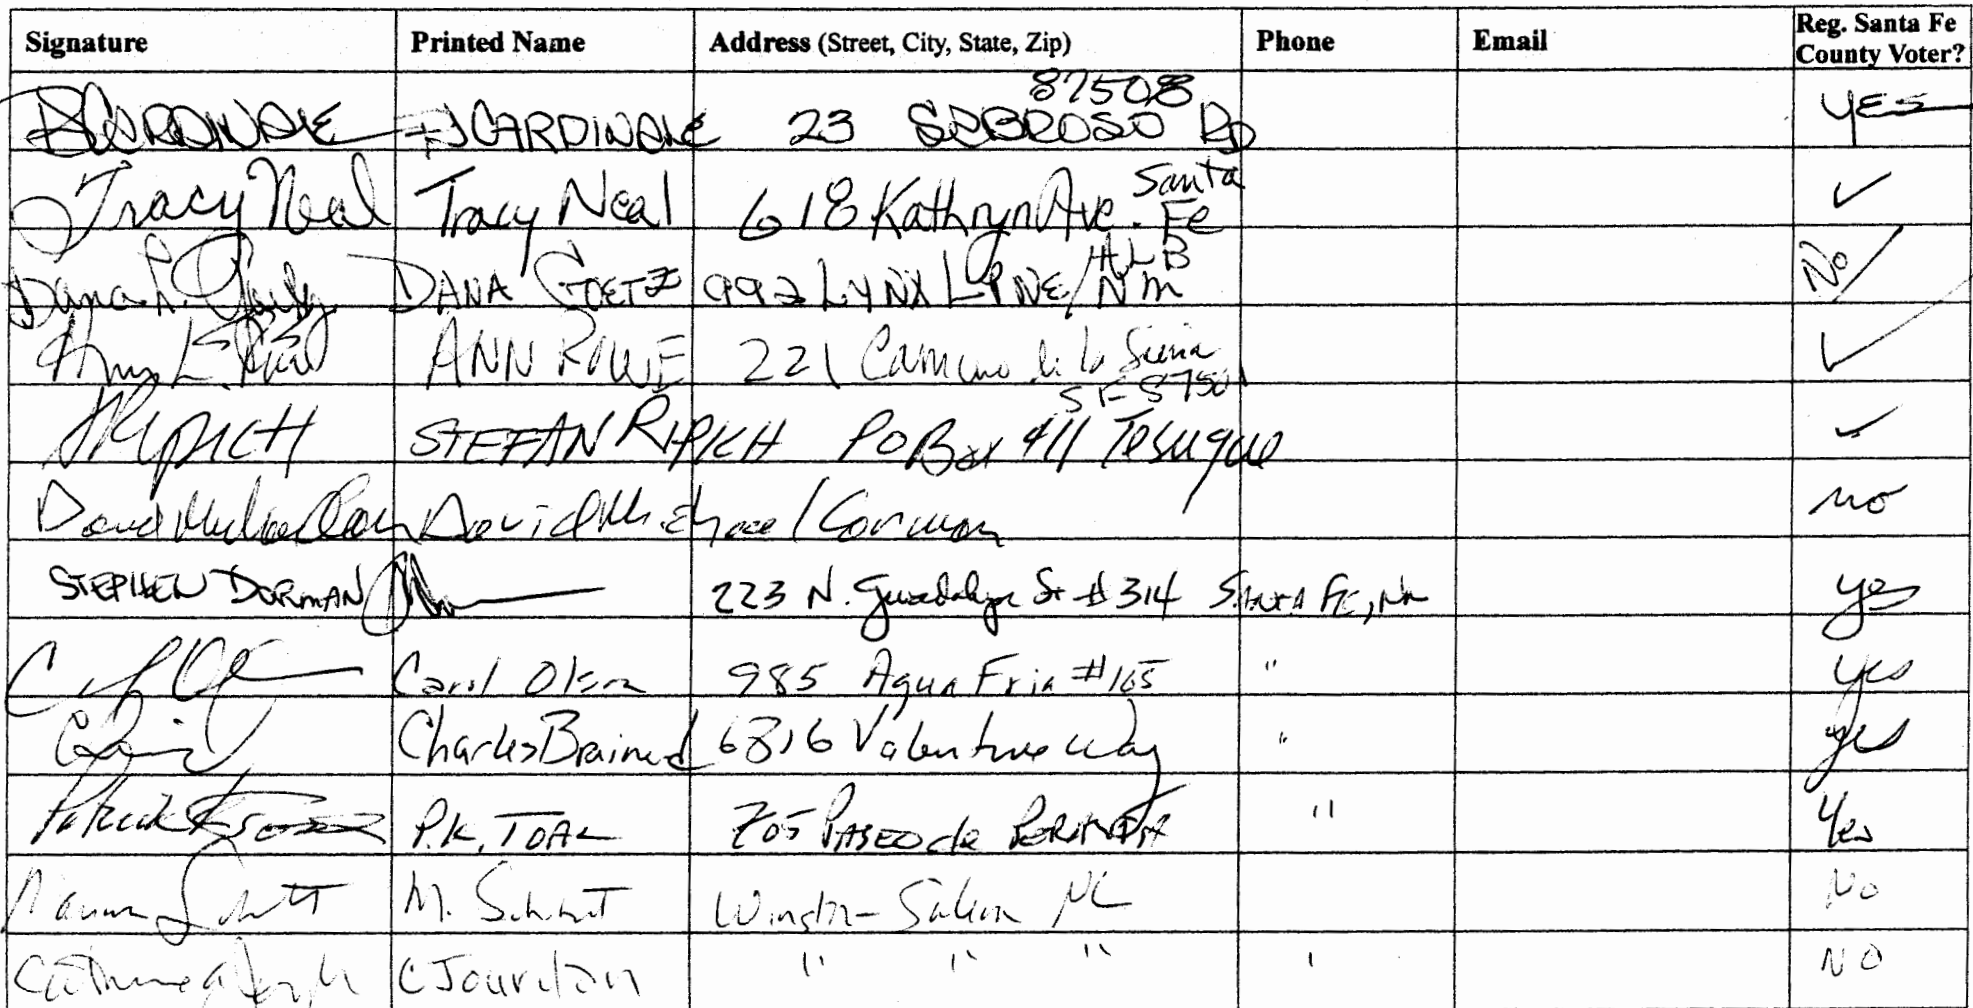 Signature Printed Name Address (Street, City, State, Zip) Phone Email Reg. Santa Fe County Voter?
87508
CARDINALE CARDINALE 23 SABROSO RD YES
Tracy Neal Tracy Neal 618 Kathryn Ave. Santa Fe ✓
Dana L. DANA GOETZ 992 LYNX LANE/ALB NM No
Ann L. ANN ROWE 221 Camino de la Sierra ✓
SF 87501
RIPICH STEFAN RIPICH PO Box 411 Tesuque ✓
David Michael David Michael Corman no
STEPHEN DORMAN 223 N. Guadalupe St #314 SANTA FE, NM yes
Carol Olson 985 Agua Fria #165 " yes
Charles Brainerd 6816 Valentine Way " yes
Patrick P.K. TOAL 705 PASEO de PERALTA " Yes
M. Schmitt Winston-Salem NC No
C Jourdan " " " ' NO